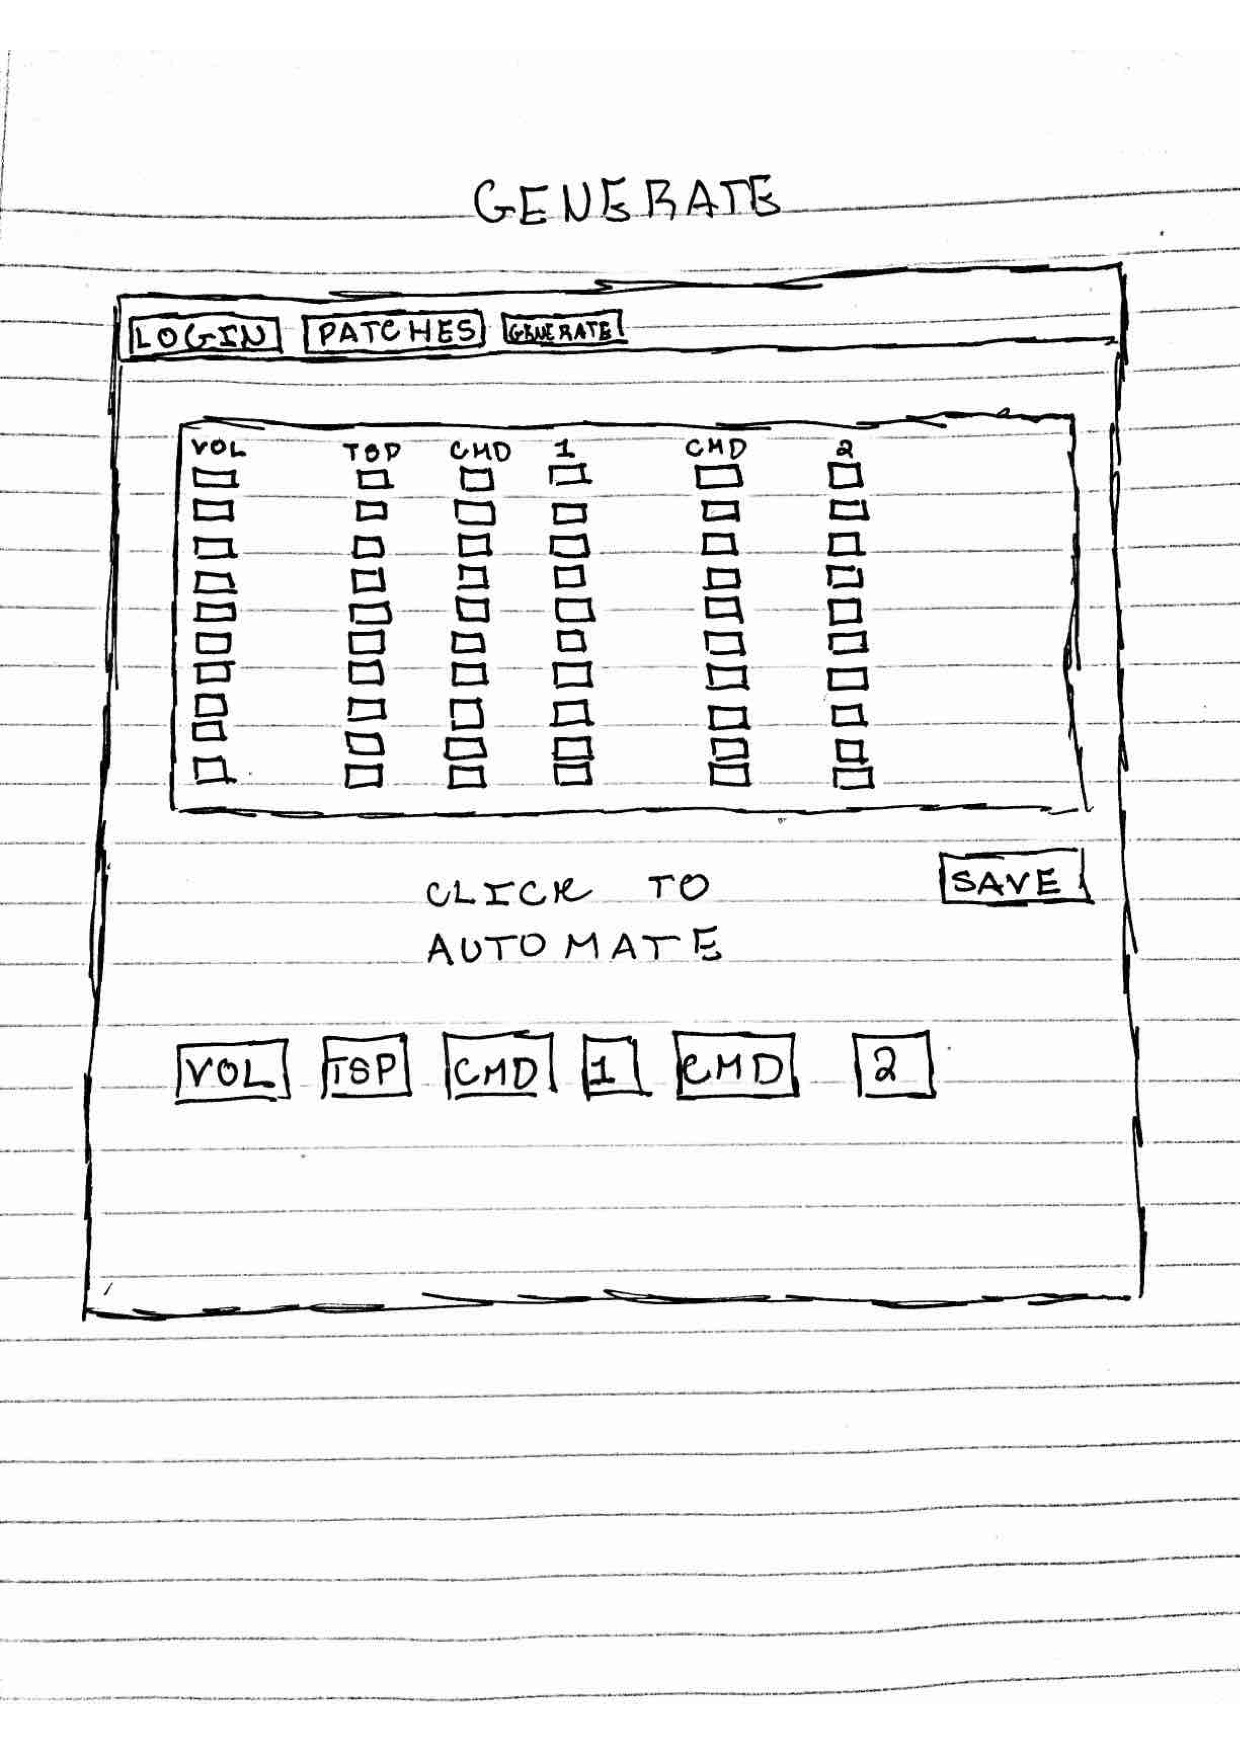 GENERATE
LOGIN PATCHES GENERATE
VOL TSP CMD 1 CMD 2
CLICK TO
AUTOMATE
SAVE
VOL TSP CMD 1 CMD 2